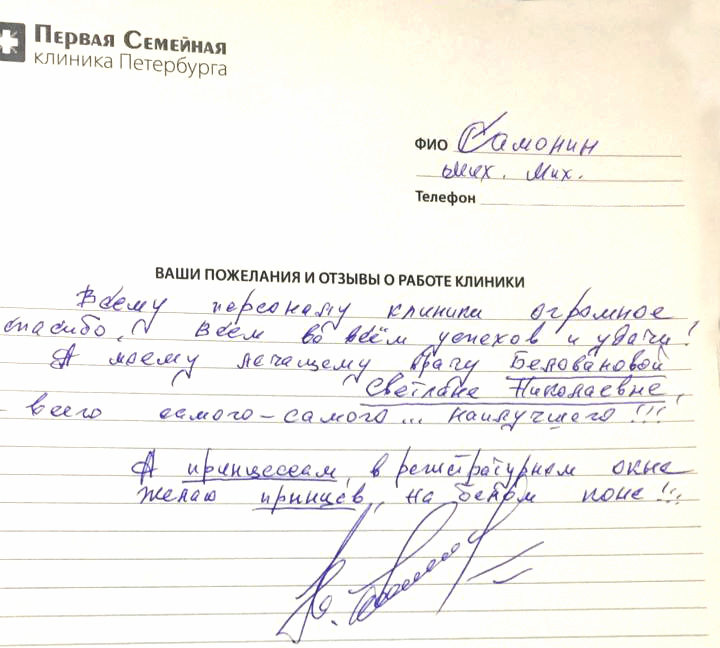 Первая Семейная
клиника Петербурга
ФИО Самонин
Мих. Мих.
Телефон
ВАШИ ПОЖЕЛАНИЯ И ОТЗЫВЫ О РАБОТЕ КЛИНИКИ
Всему персоналу клиники огромное
спасибо, Всем во всём успехов и удачи!
А моему лечащему врачу Беловановой
Светлане Николаевне,
- всего самого-самого... наилучшего!!!
А принцессам, в регистратурном окне
желаю принцев, на белом коне!!!